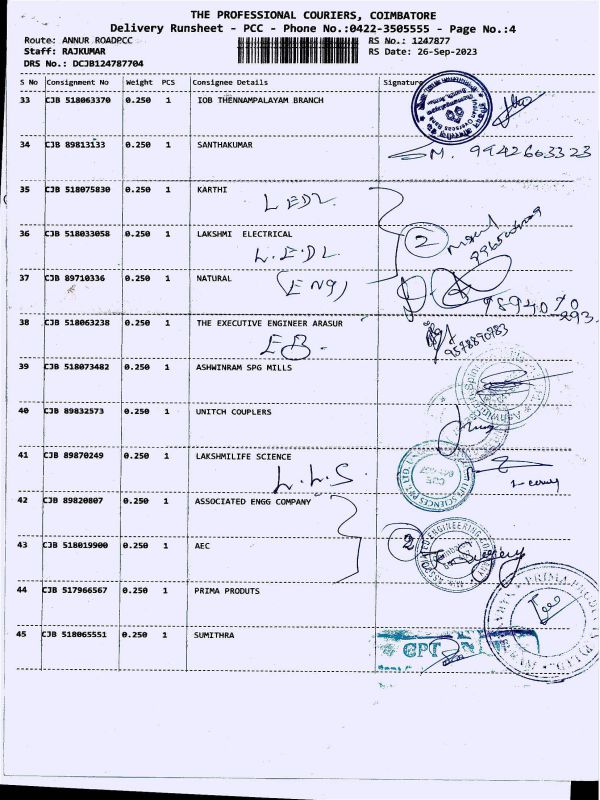 THE PROFESSIONAL COURIERS, COIMBATORE
Delivery Runsheet - PCC - Phone No.:0422-3505555 - Page No.:4
Route: ANNUR ROADPCC RS No.: 1247877
Staff: RAJKUMAR RS Date: 26-Sep-2023
DRS No.: DCJB124787704
S No Consignment No Weight PCS Consignee Details Signature
33 CJB 518063370 0.250 1 IOB THENNAMPALAYAM BRANCH
34 CJB 89813133 0.250 1 SANTHAKUMAR
M. 9942663323
35 CJB 518075830 0.250 1 KARTHI
LEDL
36 CJB 518033058 0.250 1 LAKSHMI ELECTRICAL
2
L.EDL
37 CJB 89710336 0.250 1 NATURAL
(ENG)
38 CJB 518063238 0.250 1 THE EXECUTIVE ENGINEER ARASUR
EB.
9578890983
39 CJB 518073482 0.250 1 ASHWINRAM SPG MILLS
40 CJB 89832573 0.250 1 UNITCH COUPLERS
41 CJB 89870249 0.250 1 LAKSHMILIFE SCIENCE
L.L.S.
42 CJB 89820807 0.250 1 ASSOCIATED ENGG COMPANY
43 CJB 518019900 0.250 1 AEC
2
44 CJB 517966567 0.250 1 PRIMA PRODUTS
45 CJB 518065551 0.250 1 SUMITHRA